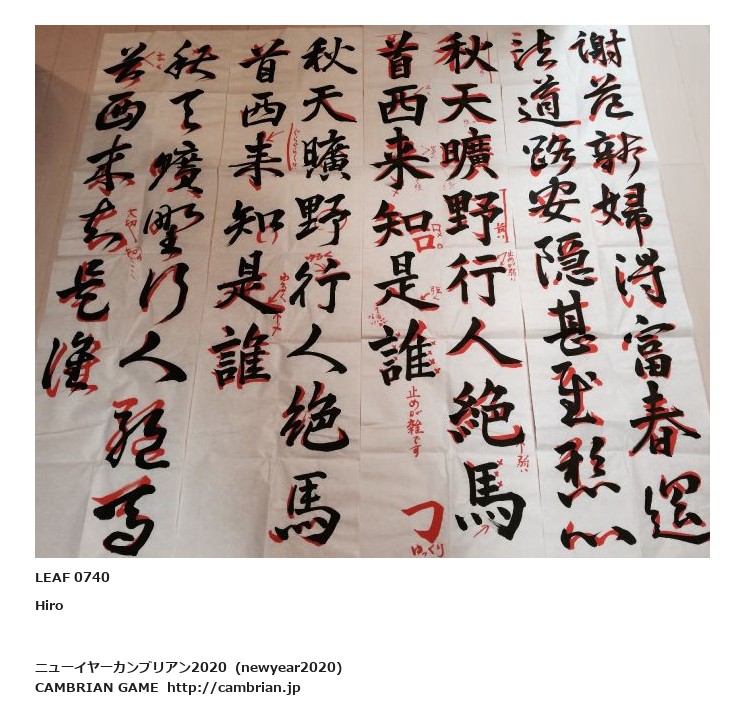 謝范新婦得富春還
諸道路安隠甚慰懸心
秋天曠野行人絶馬
首西来知是誰
止めが雑です
ゆっくり
秋天曠野行人絶馬
首西来知是誰
秋天曠野行人絶馬
首西来知是誰
LEAF 0740
Hiro
ニューイヤーカンブリアン2020 (newyear2020)
CAMBRIAN GAME http://cambrian.jp